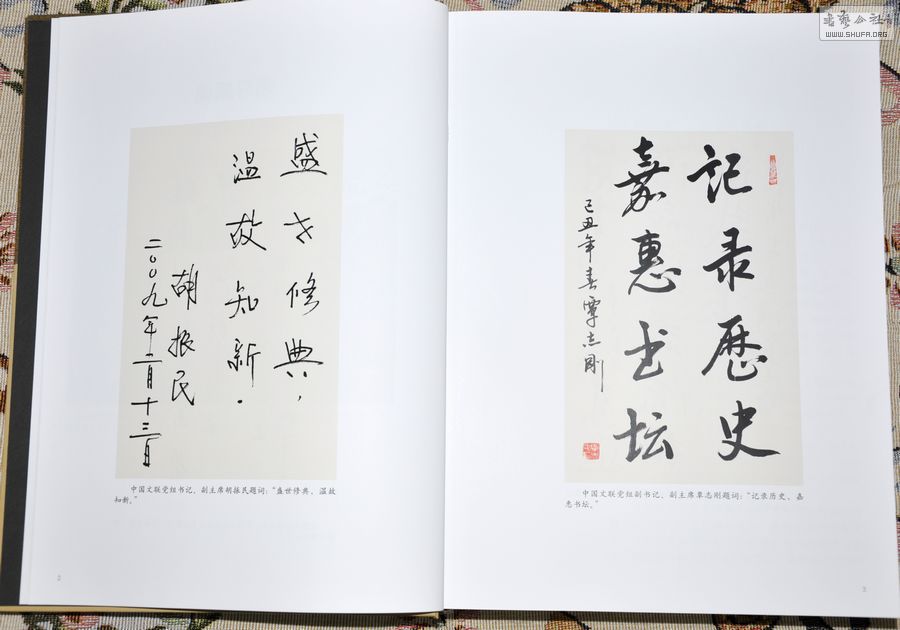 盛世修典，
温故知新.
胡振民
二〇〇九年二月十三日
中国文联党组书记、副主席胡振民题词：“盛世修典、温故
知新。”
记录历史
嘉惠书坛
己丑年春覃志刚
中国文联党组副书记、副主席覃志刚题词：“记录历史、嘉
惠书坛。”
书艺公社
WWW.SHUFA.ORG